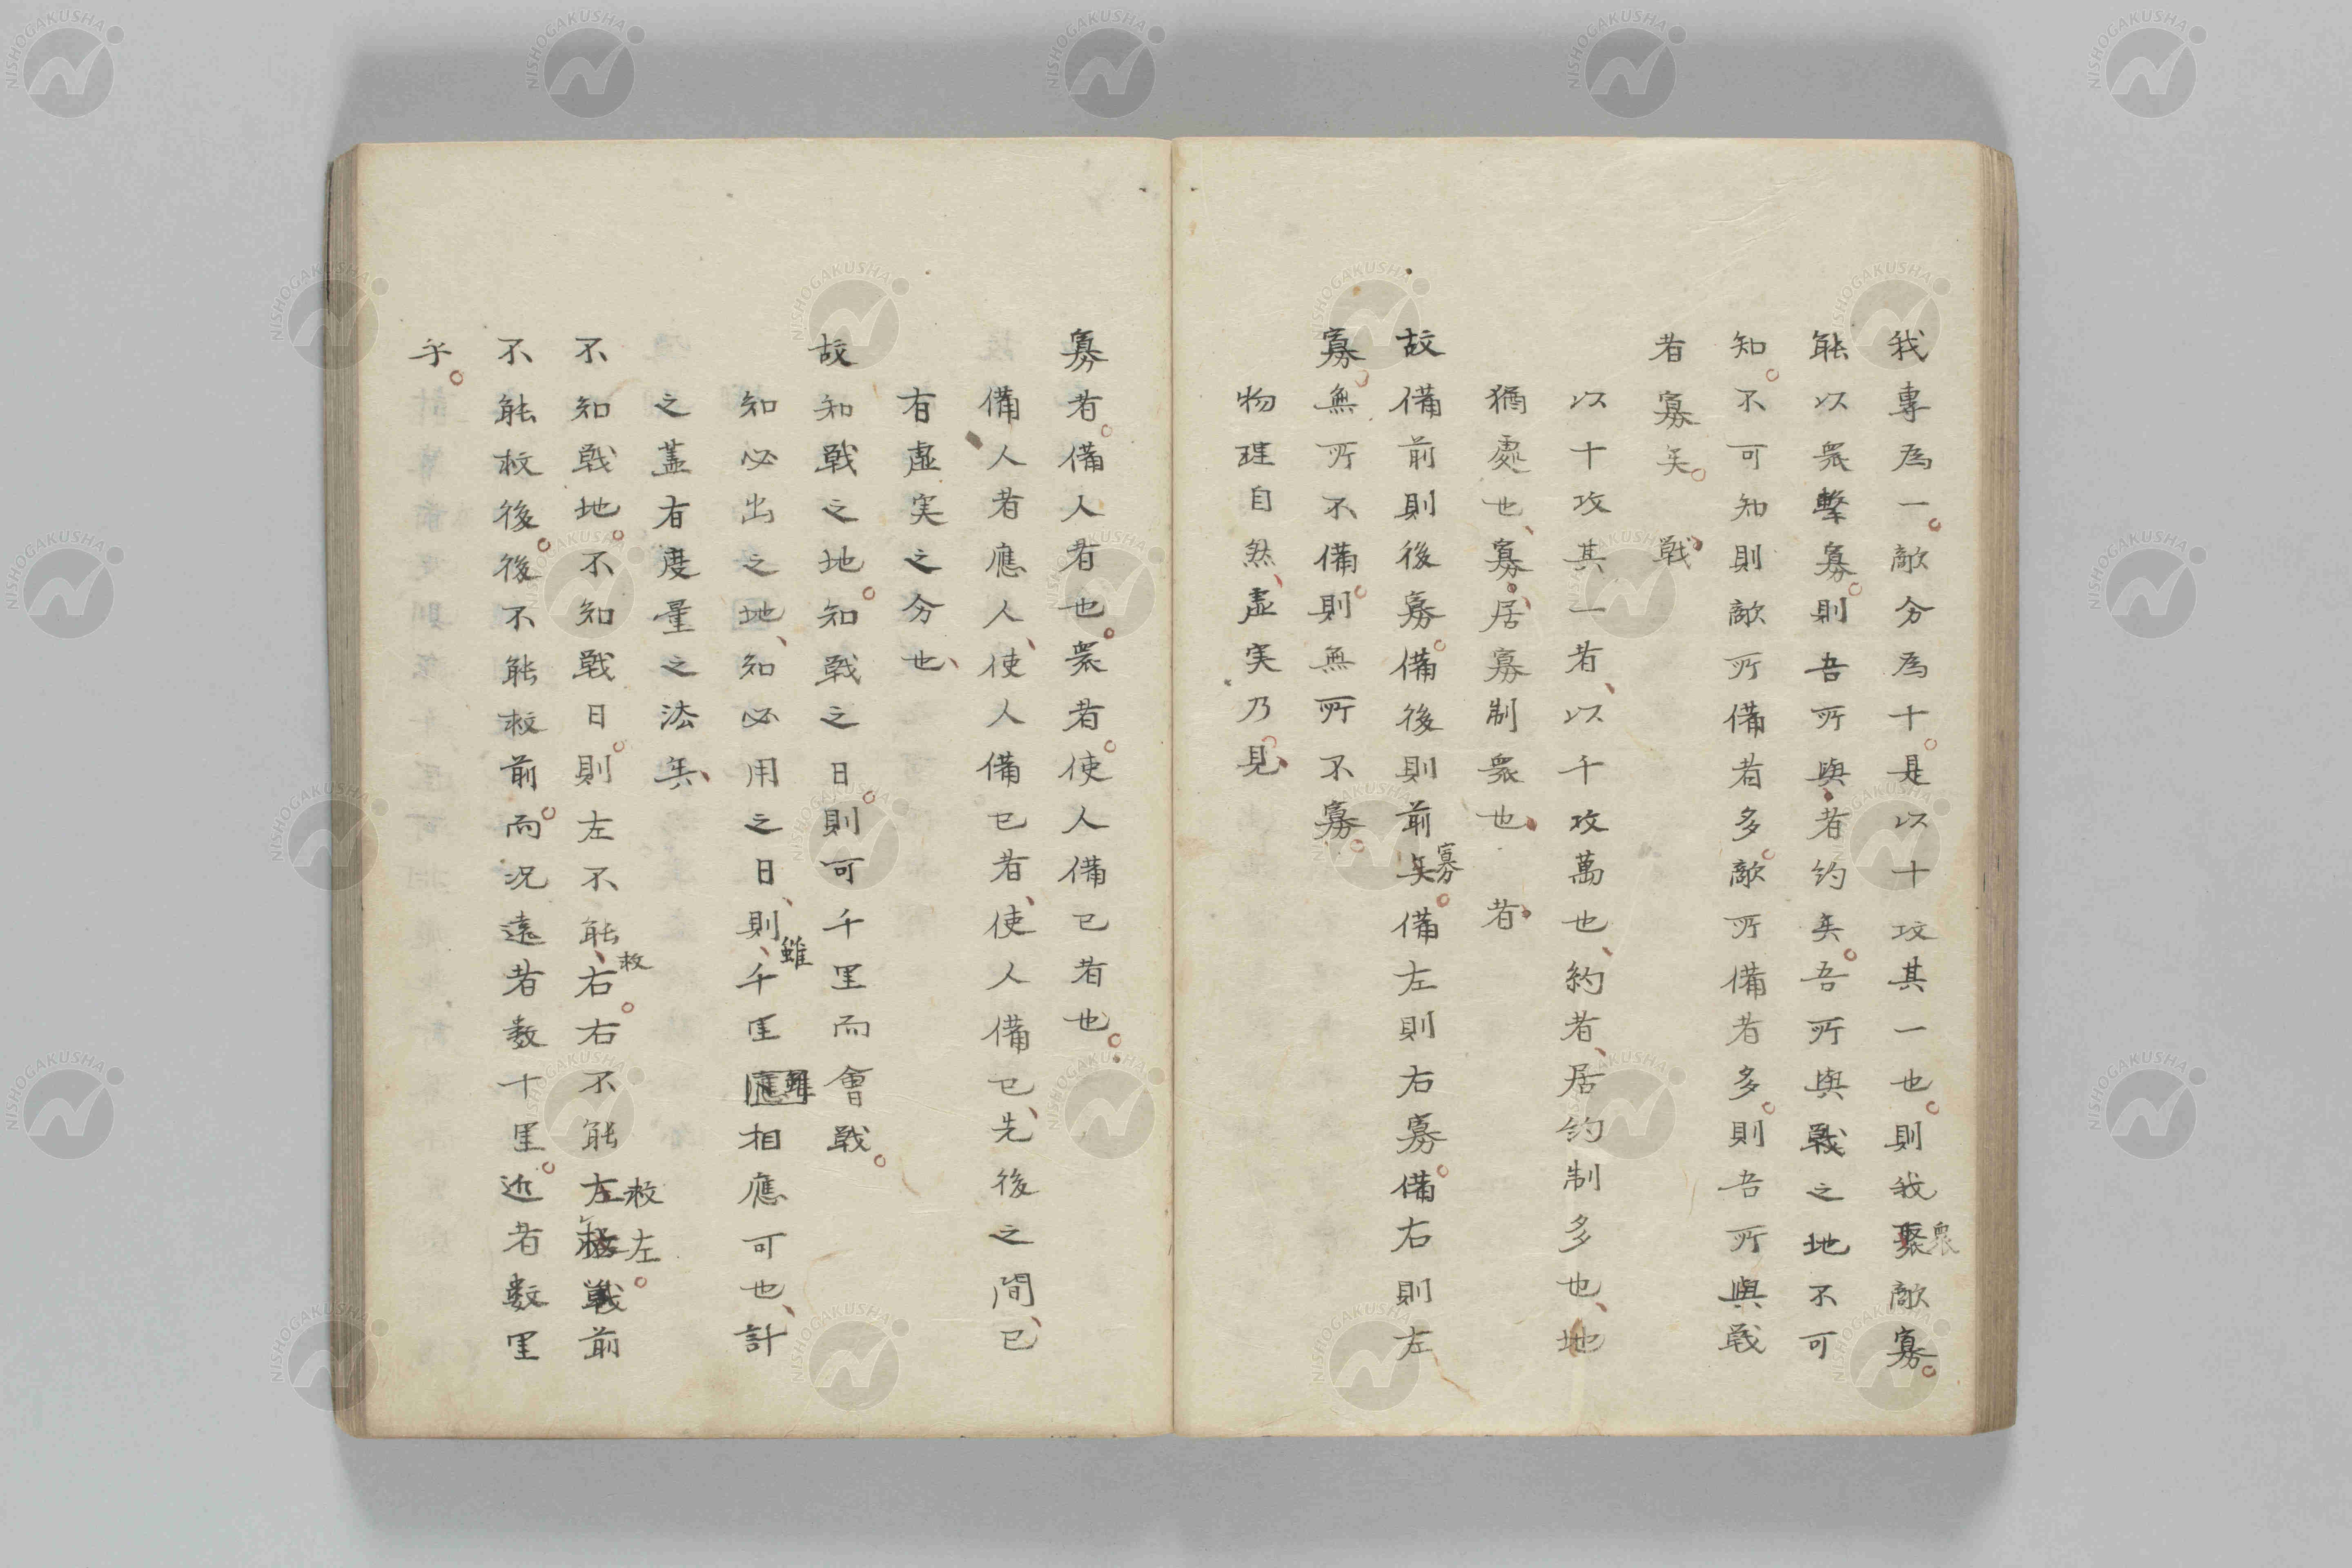 我專為一。敵分為十。是以十攻其一也。則我聚衆敵寡。
能以衆擊寡。則吾所與者約矣。吾所與戰之地不可
知。不可知則敵所備者多。敵所備者多。則吾所與戰
者寡矣。戰
以十攻其一者、以千攻萬也、約者、居約制多也、地
猶處也、寡、居寡制衆也、者
故備前則後寡。備後則前矣寡。備左則右寡。備右則左
寡。無所不備。則無所不寡。
物理自然、虛実乃見、
寡者。備人者也。衆者。使人備已者也。
備人者應人、使人備已者、使人備已、先後之間、已
有虛実之分也、
故知戰之地。知戰之日。則可千里而會戰。
知必出之地、知必用之日、則、雖千里應雖相應可也、計
之蓋有度量之法矣、
不知戰地。不知戰日。則左不能、救右。右不能左救左。戰前
不能救後。後不能救前。而况遠者数十里。近者數里
乎。
NISHOGAKUSHA